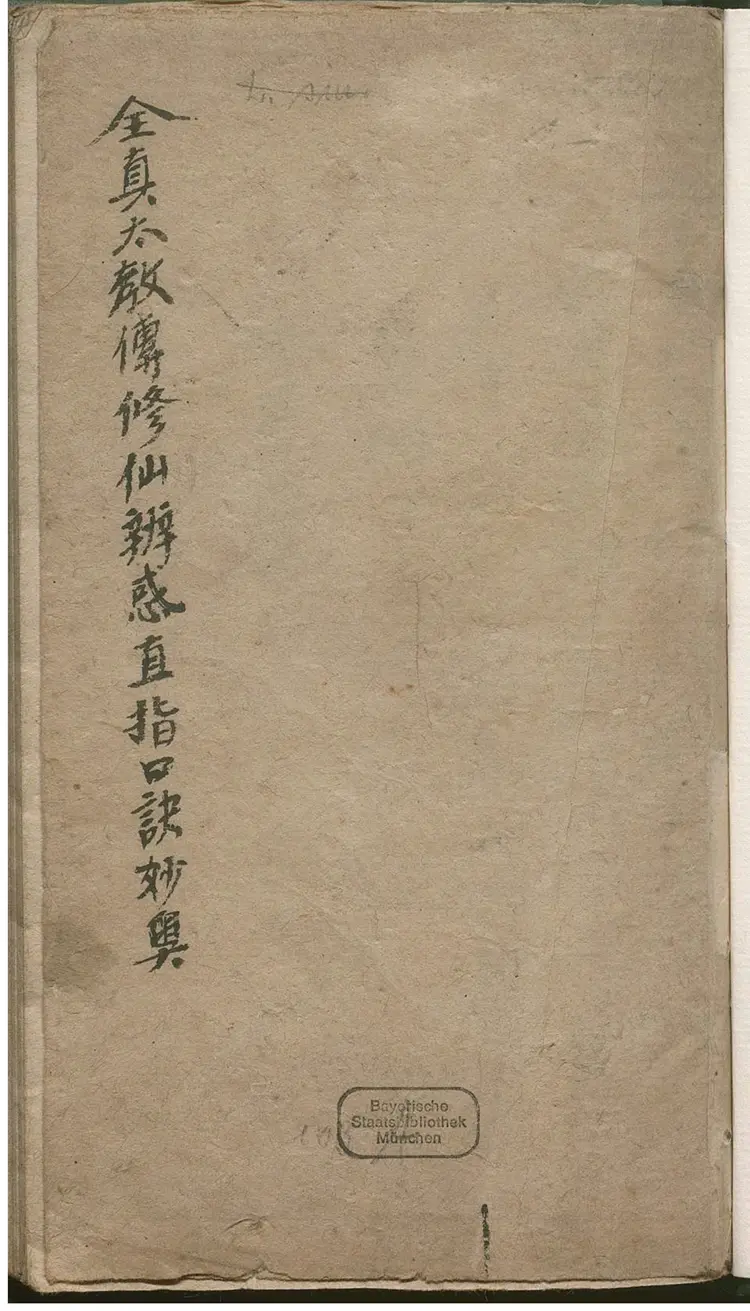 全真太教傳修仙辨惑直指口訣妙奥
Bayerische
Staatsbibliothek
München